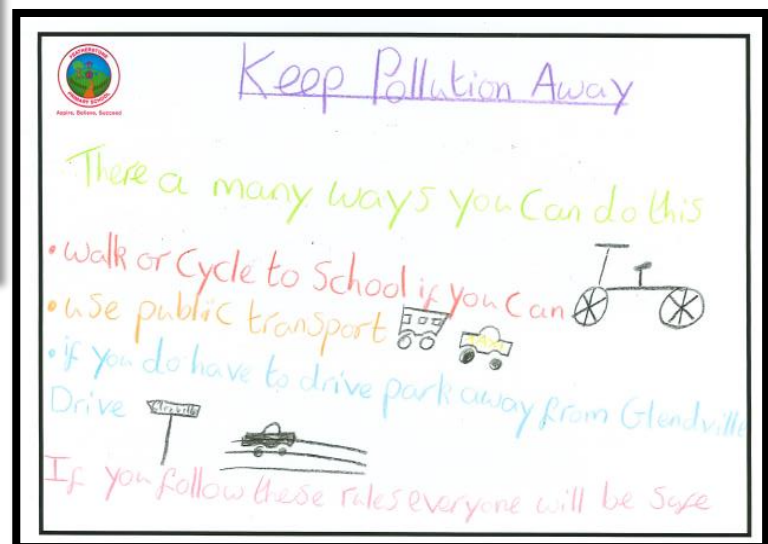 FEATHERSTONE
PRIMARY SCHOOL
Aspire, Believe, Succeed
Keep Pollution Away
There a many ways you can do this
• walk or Cycle to School if you Can
• use public transport
TAXI
• if you do have to drive park away from Glendville
Drive
If you follow these rules everyone will be safe